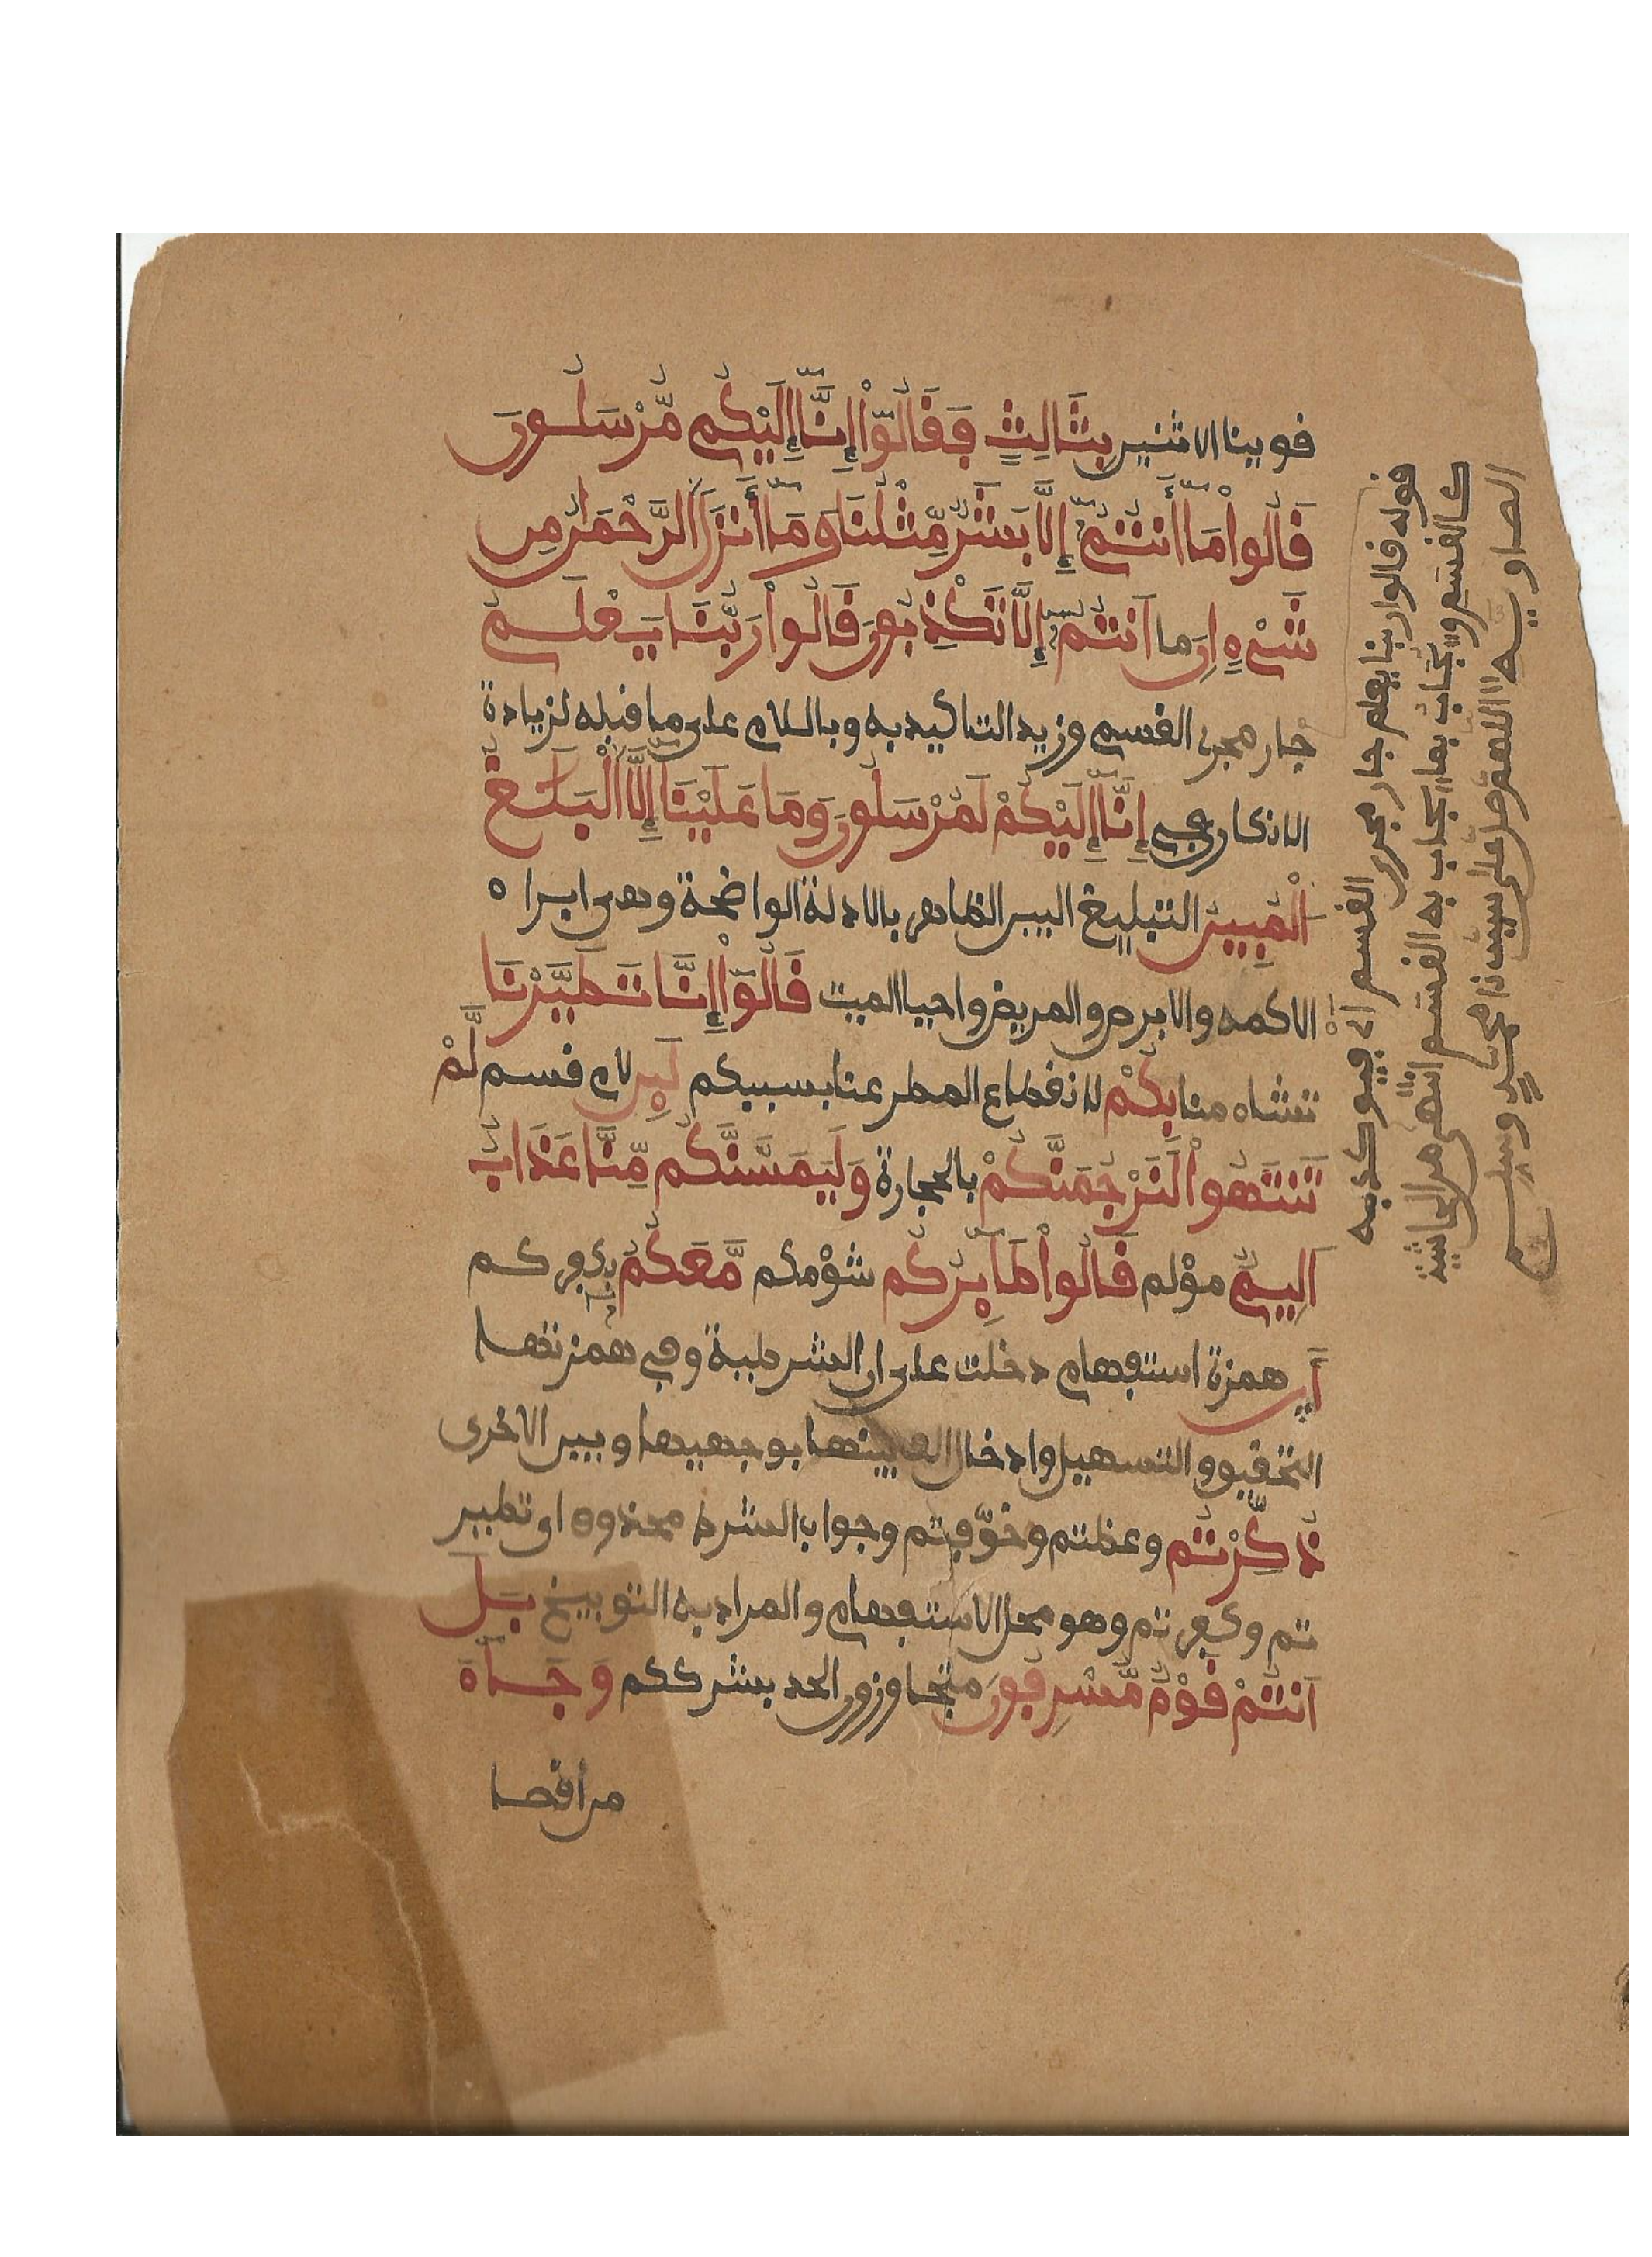 قوينا الاثنين بِثَالِثٍ فَقَالُوٓاْ إِنَّآ إِلَيْكُم مُّرْسَلُونَ
قَالُواْ مَآ أَنتُمْ إِلَّا بَشَرٌ مِّثْلُنَا وَمَآ أَنزَلَ الرَّحْمَٰنُ مِن
شَىْءٍ اِنَ ما اَنتُمْ إِلَّا تَكْذِبُونَ قَالُواْ رَبُّنَا يَعْلَمُ
جار مجرى القسم وزيد التاكيد به وباللام على ما قبله لزيادة
الانكار في إِنَّآ إِلَيْكُمْ لَمُرْسَلُونَ وَمَا عَلَيْنَآ إِلَّا اَلْبَلَٰغُ
اُلْمُبِينُ التبليغ البين الظاهر بالادلة الواضحة وهى ابراء
الاكمه والابرص والمريض واحيا الميت قَالُوٓاْ إِنَّا تَطَيَّرْنَا
تشاءمنا بِكُمْ لانقطاع المطر عنا بسببكم لَئِن لام قسم لَّمْ
تَنتَهُواْ لَنَرْجُمَنَّكُمْ بالحجارة وَلَيَمَسَّنَّكُم مِّنَّا عَذَابٌ
اَلِيمٌ مؤلم قَالُواْ طَٰٓئِرُكُم شؤمكم مَّعَكُمْ بكفركم
أَئِن همزة استفهام دخلت على ان الشرطية وفي همزتها
التحقيق والتسهيل وادخال الف بينها بوجهيها وبين الاخرى
ذُكِّرْتُم وعظتم وخوّفتم وجواب الشرط محذوف اى تطير
تم وكفرتم وهو محل الاستفهام والمراد به التوبيخ بَلَ
اَنتُمْ قَوْمٌ مُّسْرِفُونَ متجاوزون الحد بشرككم وَجَآءَ
من اقصا
قوله قالوا ربنا يعلم جار مجرى القسم اى فيوكد به
كالقسم ويجاب بما يجاب به القسم انتهى من الحاشية
الصاويه اللهم صل على سيدنا محمد وسلم